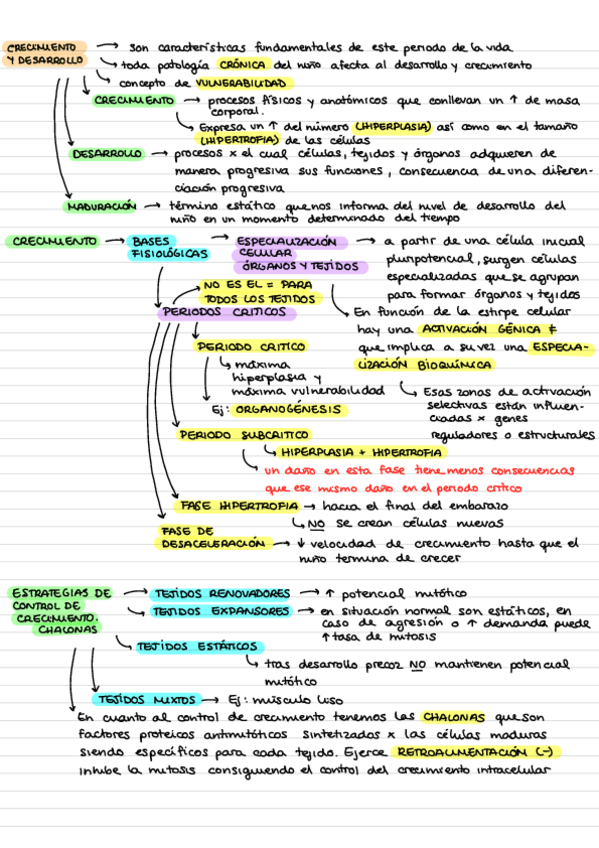 CRECIMIENTO Y DESARROLLO → son características fundamentales de este periodo de la vida
→ toda patología CRÓNICA del niño afecta al desarrollo y crecimiento
→ concepto de VULNERABILIDAD
CRECIMIENTO → procesos físicos y anatómicos que conllevan un ↑ de masa corporal.
↳ Expresa un ↑ del número (HIPERPLASIA) así como en el tamaño
(HIPERTROFIA) de las células
DESARROLLO → procesos x el cual células, tejidos y órganos adquieren de
manera progresiva sus funciones, consecuencia de una diferen-
ciación progresiva
MADURACIÓN → término estático que nos informa del nivel de desarrollo del
niño en un momento determinado del tiempo
CRECIMIENTO → BASES FISIOLÓGICAS → ESPECIALIZACIÓN CELULAR ÓRGANOS Y TEJIDOS → a partir de una célula inicial
pluripotencial, surgen células
especializadas que se agrupan
para formar órganos y tejidos
↳ En función de la estirpe celular
hay una ACTIVACIÓN GÉNICA ≠
que implica a su vez una ESPECIA-
LIZACIÓN BIOQUÍMICA
↳ Esas zonas de activación
selectivas están influen-
ciadas x genes
reguladores o estructurales
PERIODOS CRITICOS
→ NO ES EL = PARA
TODOS LOS TEJIDOS
PERIODO CRITICO
↳ máxima
hiperplasia y
máxima vulnerabilidad
Ej: ORGANOGÉNESIS
PERIODO SUBCRITICO
↳ HIPERPLASIA + HIPERTROFIA
↳ un daño en esta fase tiene menos consecuencias
que ese mismo daño en el periodo crítico
FASE HIPERTROFIA → hacia el final del embarazo
↳ NO se crean células nuevas
FASE DE
DESACELERACIÓN → ↓ velocidad de crecimiento hasta que el
niño termina de crecer
ESTRATEGIAS DE
CONTROL DE
CRECIMIENTO.
CHALONAS
→ TEJIDOS RENOVADORES → ↑ potencial mitótico
→ TEJIDOS EXPANSORES → en situación normal son estáticos, en
caso de agresión o ↑ demanda puede
↑ tasa de mitosis
→ TEJIDOS ESTÁTICOS
↳ tras desarrollo precoz NO mantienen potencial
mitótico
TEJIDOS MIXTOS → Ej: músculo liso
En cuanto al control de crecimiento tenemos las CHALONAS que son
factores proteicos antimitóticos sintetizados x las células maduras
siendo específicos para cada tejido. Ejerce RETROALIMENTACIÓN (-)
inhibe la mitosis consiguiendo el control del crecimiento intracelular